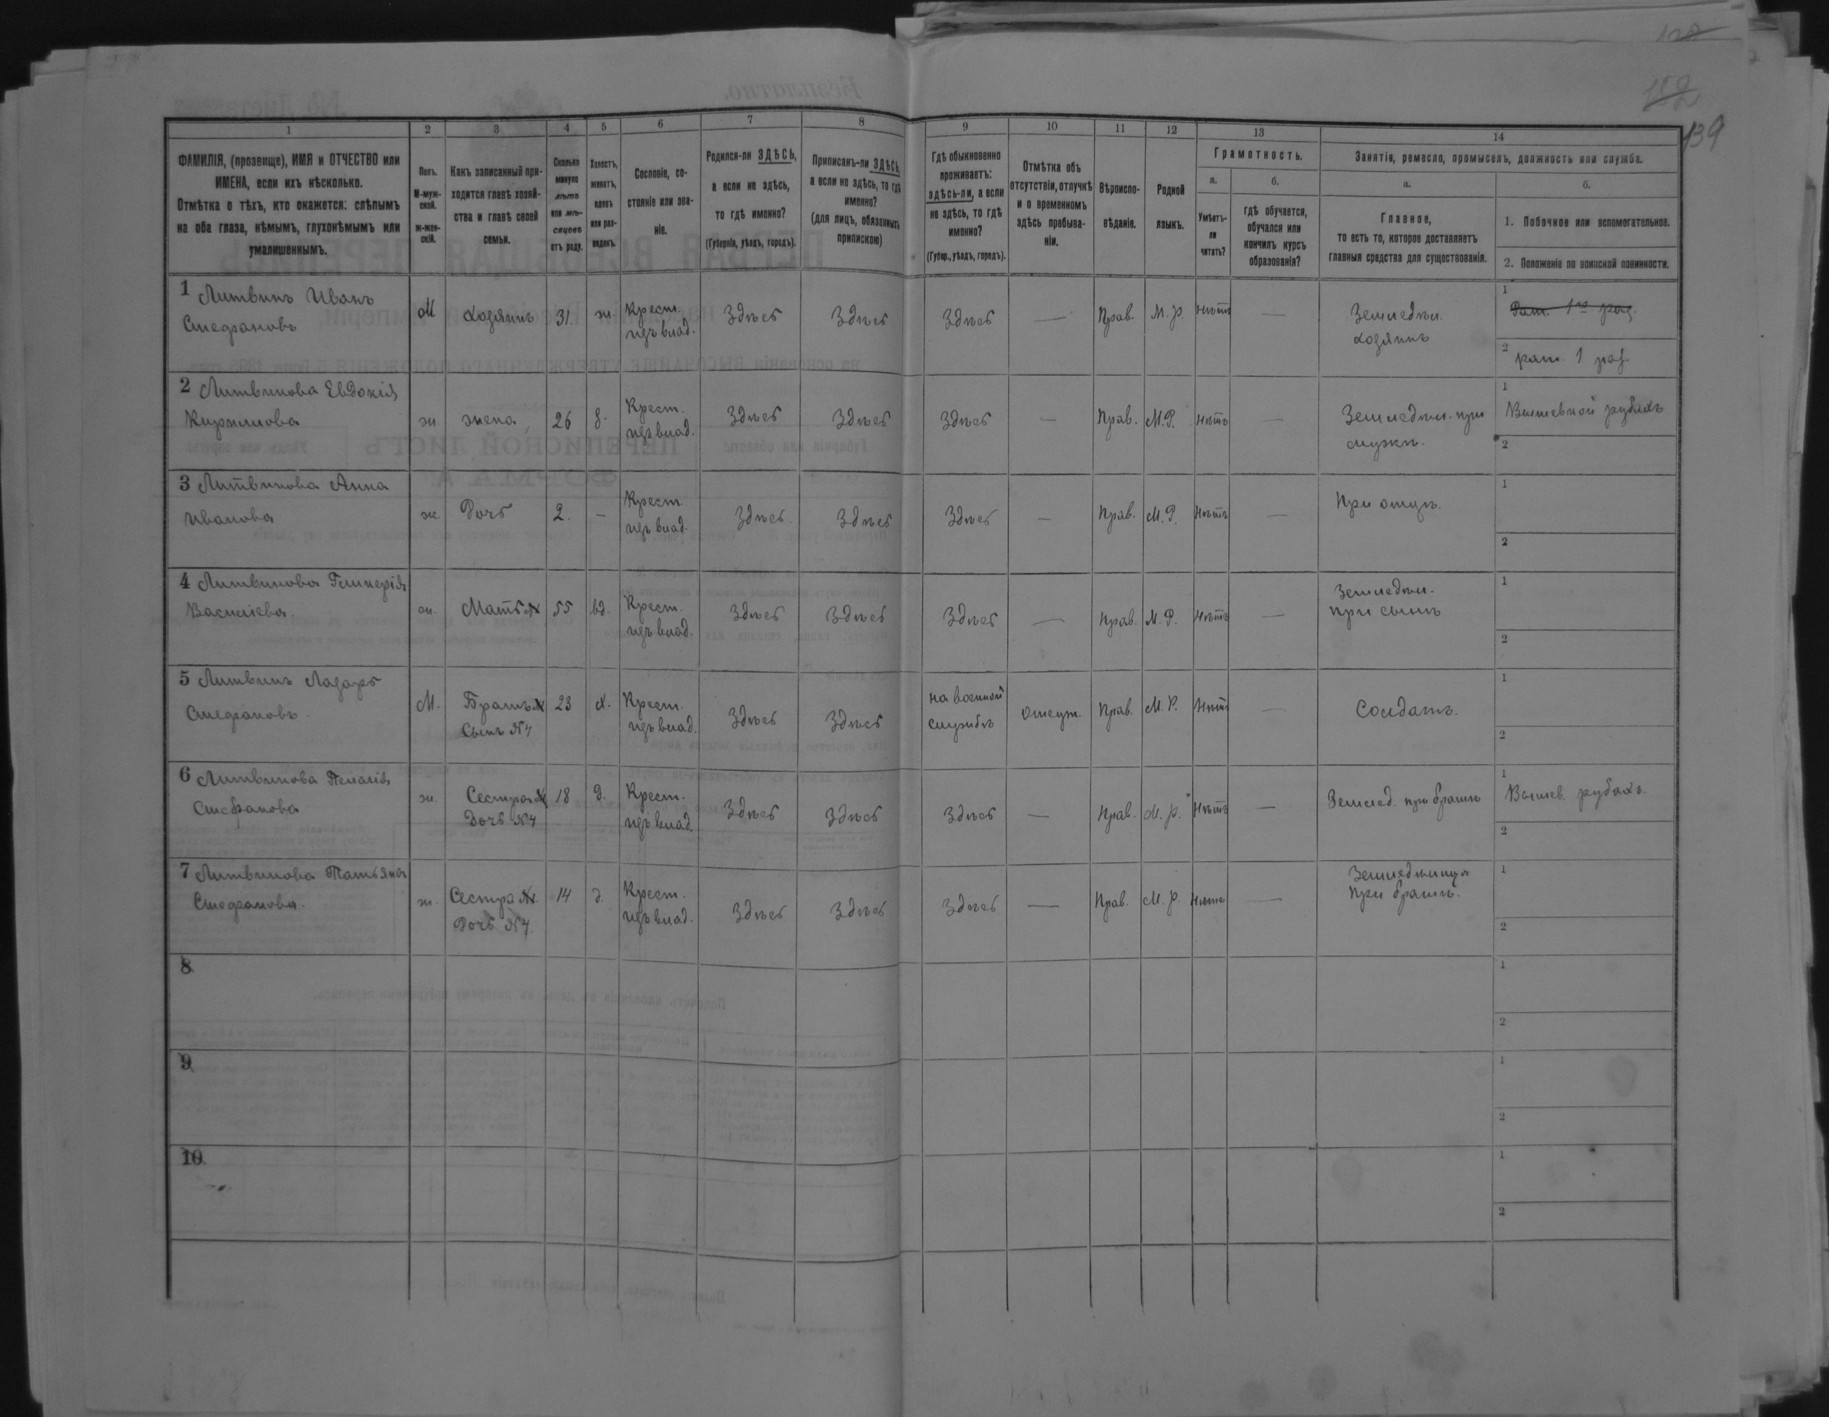 132
139
1 2 3 4 5 6 7 8 9 10 11 12 13 14
ФАМИЛІЯ, (прозвище), ИМЯ и ОТЧЕСТВО или
ИМЕНА, если ихъ нѣсколько.
Отмѣтка о тѣхъ, кто окажется: слѣпымъ
на оба глаза, нѣмымъ, глухонѣмымъ или
умалишеннымъ.
Полъ.
М-муж-
ской.
ж-жен-
скій.
Какъ записанный при-
ходится главѣ хозяй-
ства и главѣ своей
семьи.
Сколько
минуло
лѣтъ
или мѣ-
сяцевъ
отъ роду.
Холостъ,
женатъ,
вдовъ
или раз-
веденъ.
Сословіе, со-
стояніе или зва-
ніе.
Родился-ли ЗДѢСЬ,
а если не здѣсь,
то гдѣ именно?
(Губернія, уѣздъ, городъ).
Приписанъ-ли ЗДѢСЬ,
а если не здѣсь, то гдѣ
именно?
(для лицъ, обязанныхъ
припискою)
Гдѣ обыкновенно
проживаетъ:
здѣсь-ли, а если
не здѣсь, то гдѣ
именно?
(Губер., уѣздъ, городъ).
Отмѣтка объ
отсутствіи, отлучкѣ
и о временномъ
здѣсь пребыва-
ніи.
Вѣроиспо-
вѣданіе.
Родной
языкъ.
Грамотность.
а.
Умѣетъ-
ли
читать?
б.
гдѣ обучается,
обучался или
кончилъ курсъ
образованія?
Занятіе, ремесло, промыселъ, должность или служба.
а.
Главное,
то есть то, которое доставляетъ
главныя средства для существованія.
б.
1. Побочное или вспомогательное.
2. Положеніе по воинской повинности.
1 Литвинъ Иванъ
Стефановъ
М хозяинъ 31 ж. Крест.
изъ влад. Здѣсь Здѣсь Здѣсь — Прав. М. р. Нѣтъ —
Земледѣл.
хозяинъ
1 Рат. 1го раз.
2 рат. 1 раз.
2 Литвинова Евдокія
Кирилова
ж жена 26 з. Крест.
изъ влад. Здѣсь Здѣсь Здѣсь — Прав. М.Р. Нѣтъ —
Земледѣл. при
мужѣ.
1 Вышевкой рубахъ
2
3 Литвинова Анна
Иванова
ж. Дочь 2. — Крест.
изъ влад. Здѣсь Здѣсь Здѣсь — Прав. М.Р. Нѣтъ —
При отцѣ.
1
2
4 Литвинова Гликерія
Васильева
ж. Мать 55 вд. Крест.
изъ влад. Здѣсь Здѣсь Здѣсь — Прав. М.Р. Нѣтъ —
Земледѣл.
при сынѣ
1
2
5 Литвинъ Лазарь
Стефановъ
М. Братъ
Сынъ №4 23 х. Крест.
изъ влад. Здѣсь Здѣсь на военной
службѣ отсут. Прав. М. Р. Нѣтъ —
Солдатъ.
1
2
6 Литвинова Пелагія
Стефанова
ж. Сестра
Дочь №4 18 д. Крест.
изъ влад. Здѣсь Здѣсь Здѣсь — Прав. М. р. Нѣтъ —
Земледѣл. при братѣ
1 Вышев. рубахъ.
2
7 Литвинова Татьяна
Стефанова.
ж. Сестра
Дочь №4. 14 д. Крест.
изъ влад. Здѣсь Здѣсь Здѣсь — Прав. М. р. Нѣтъ —
Земледѣлица
При братѣ.
1
2
8
1
2
9
1
2
10
1
2